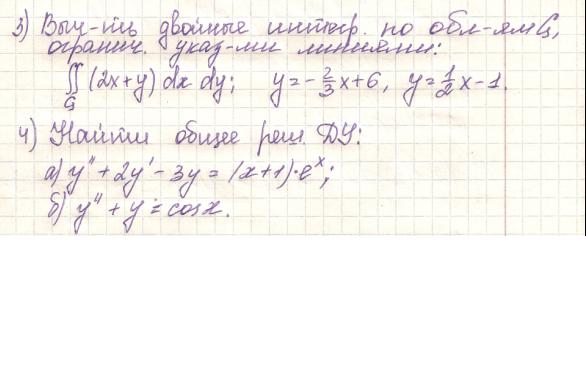 3) Выч-ть двойные интегр. по обл-ям G,
огранич. указ-ми линиями:
∬ (2x+y) dx dy; y=-2/3x+6, y=1/2x-1.
G
4) Найти общее реш. ДУ:
а) y''+2y'-3y=(x+1)·e^x;
б) y''+y=cosx.